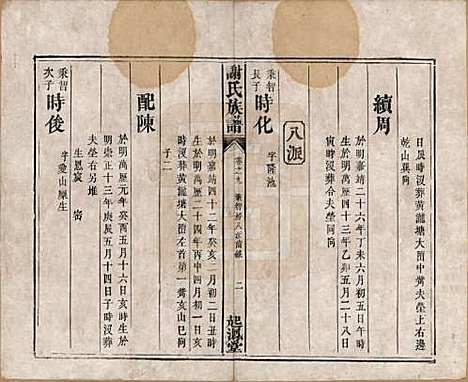 日辰時沒葬黃龍塘大茴中嘴夫塋上右邊
乾山巽向
續周
於明嘉靖二十六年丁未六月初五日午時
於明萬歷四十三年乙卯五月二十八日
寅時沒葬合夫塋同向
八派
秉智長子 時化
字龍池
謝氏族譜
二
起源堂
於明嘉靖四十二年癸亥二月初二日丑時
於明萬歷二十四年丙申四月初一日亥時
沒葬黃龍塘大茴左首第一嘴亥山巳向
子二
配陳
於明萬歷元年癸酉五月十六日亥時生於
明崇正十三年庚辰五月十四日子時沒葬
夫塋右另堆
生恩宸
秉智次子 時後
字愛山縣生